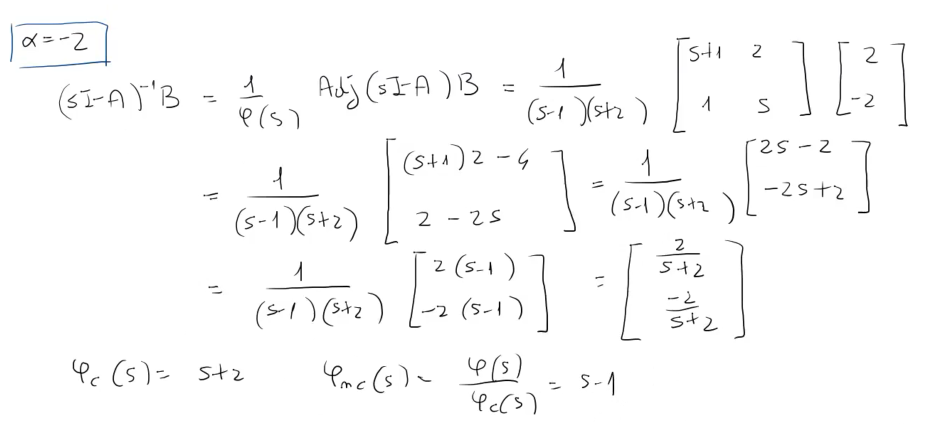 α=-2
(sI-A)⁻¹B = 1/φ(s) Adj(sI-A)B = 1/((s-1)(s+2)) [s+1 2; 1 s] [2; -2]
= 1/((s-1)(s+2)) [(s+1)2-4; 2-2s] = 1/((s-1)(s+2)) [2s-2; -2s+2]
= 1/((s-1)(s+2)) [2(s-1); -2(s-1)] = [2/(s+2); -2/(s+2)]
φc(s) = s+2 φnc(s) = φ(s)/φc(s) = s-1